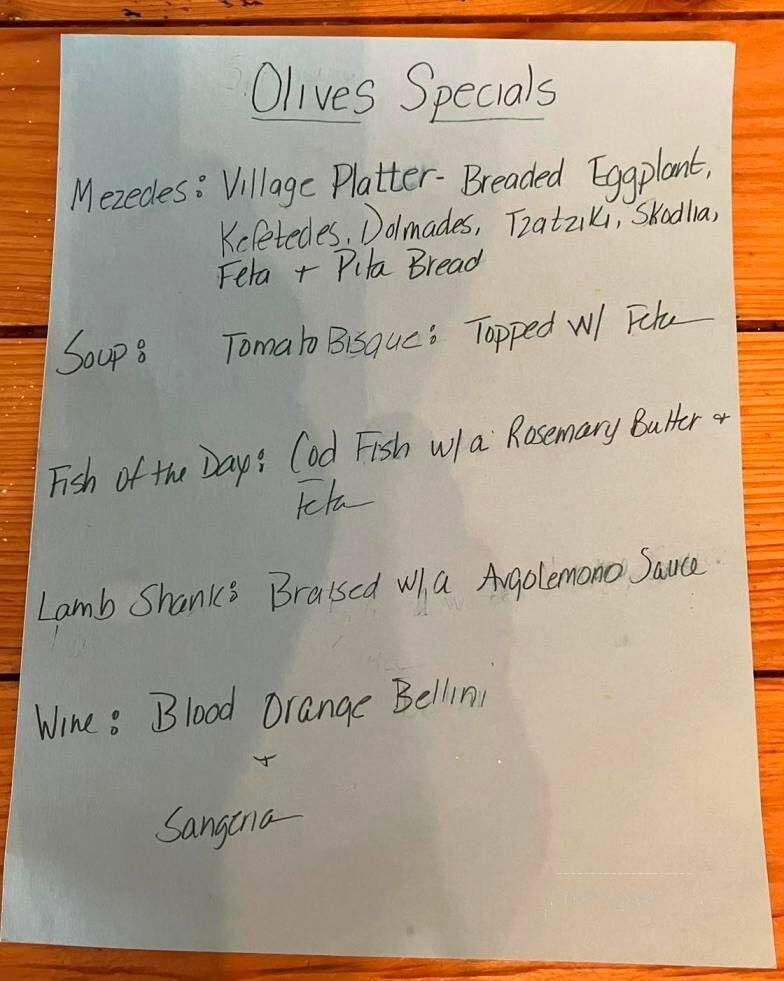 Olives Specials
Mezedes: Village Platter- Breaded Eggplant,
Kefetedes, Dolmades, Tzatziki, Skodlia,
Feta + Pita Bread
Soup: Tomato Bisque: Topped w/ Feta
Fish of the Day: Cod Fish w/a Rosemary Butter +
Feta
Lamb Shank: Braised w/a Avgolemono Sauce
Wine: Blood Orange Bellini
+
Sangeria